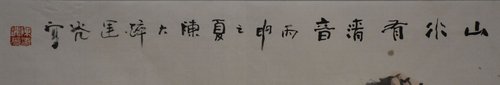 山水有清音丙申之夏陳大醉運炎寫